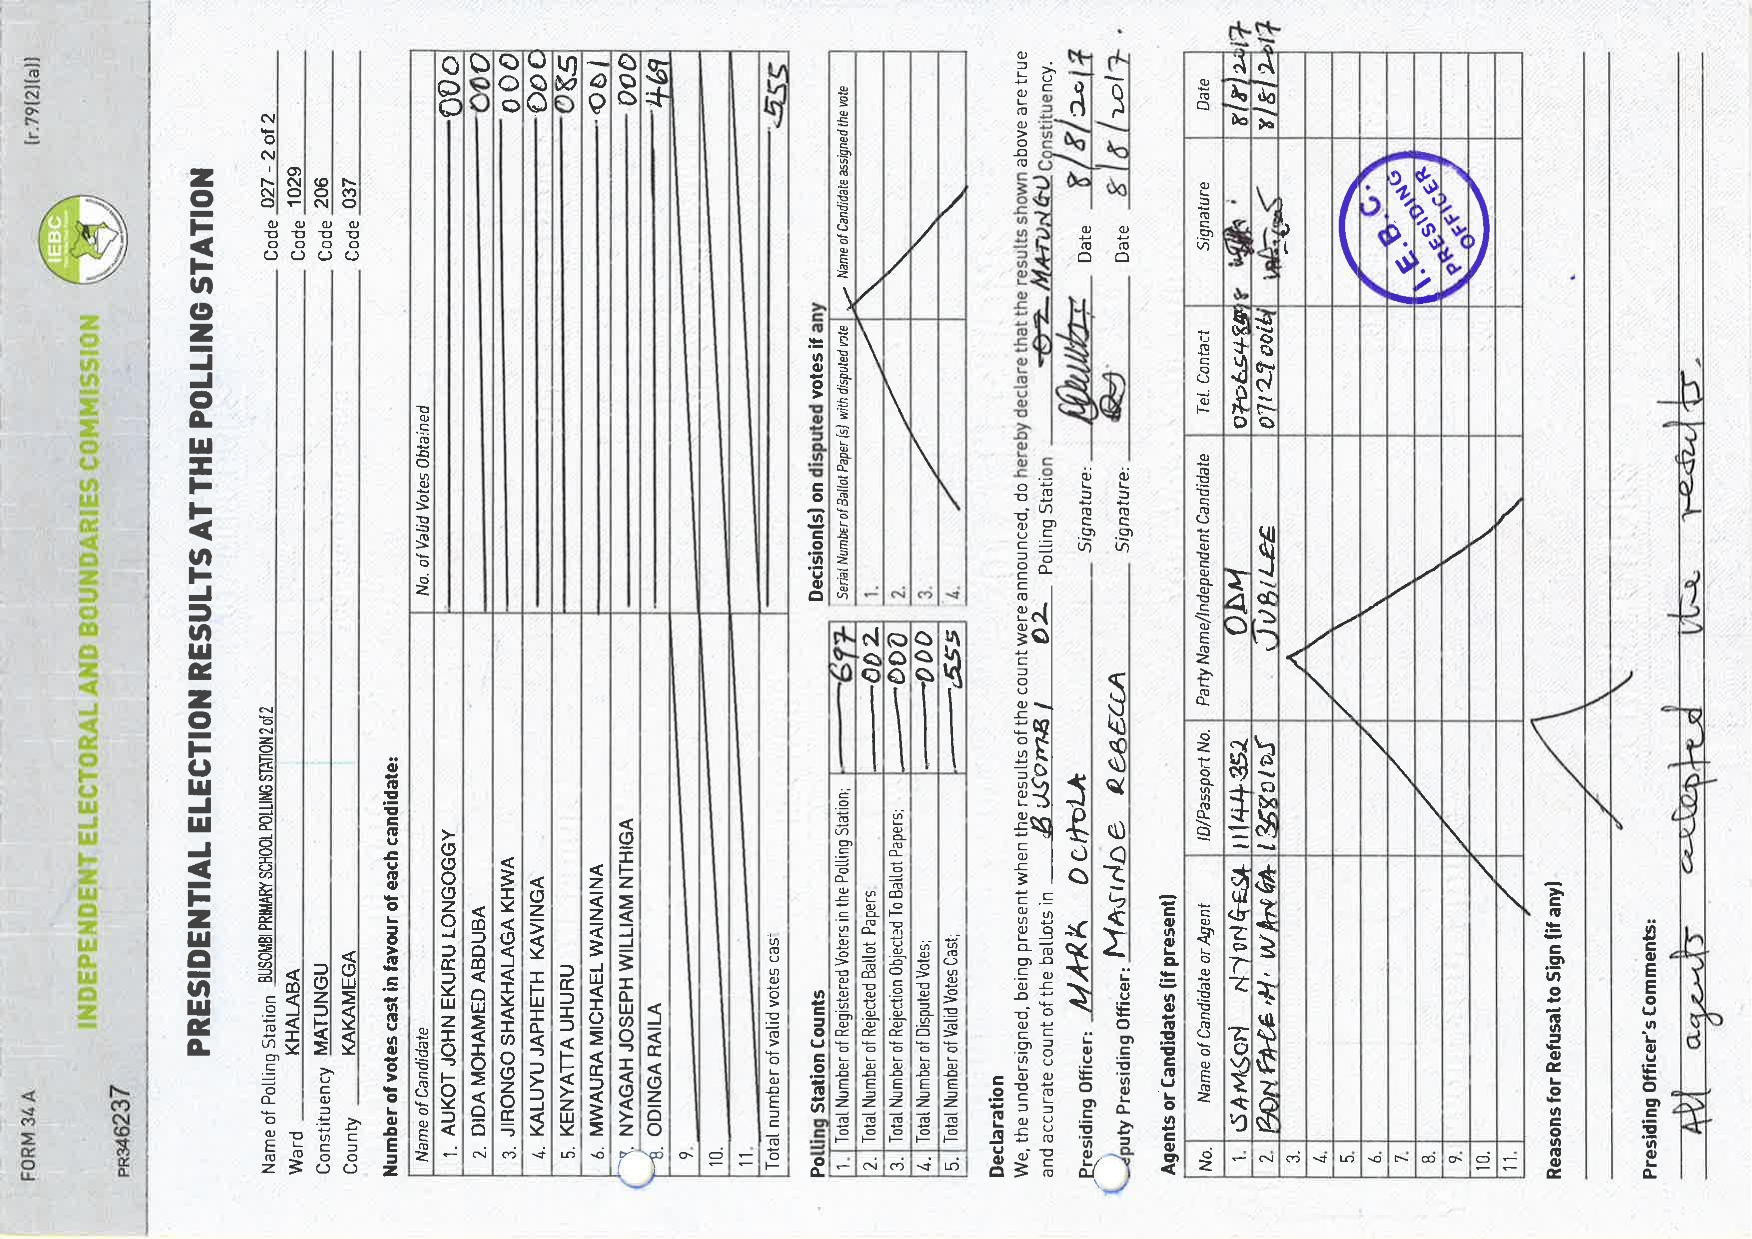 FORM 34 A
(r.79(2)(a))
IEBC
INDEPENDENT ELECTORAL AND BOUNDARIES COMMISSION
PR346237
PRESIDENTIAL ELECTION RESULTS AT THE POLLING STATION
Name of Polling Station BUSOMBI PRIMARY SCHOOL POLLING STATION 2 of 2 Code 027 - 2 of 2
Ward KHALABA Code 1029
Constituency MATUNGU Code 206
County KAKAMEGA Code 037
Number of votes cast in favour of each candidate:
Name of Candidate No. of Valid Votes Obtained
1. AUKOT JOHN EKURU LONGOGGY 000
2. DIDA MOHAMED ABDUBA 000
3. JIRONGO SHAKHALAGA KHWA 000
4. KALUYU JAPHETH KAVINGA 000
5. KENYATTA UHURU 085
6. MWAURA MICHAEL WAINAINA 001
7. NYAGAH JOSEPH WILLIAM NTHIGA 000
8. ODINGA RAILA 469
9.
10.
11.
Total number of valid votes cast 555
Polling Station Counts
1. Total Number of Registered Voters in the Polling Station; 697
2. Total Number of Rejected Ballot Papers 002
3. Total Number of Rejection Objected To Ballot Papers; 000
4. Total Number of Disputed Votes; 000
5. Total Number of Valid Votes Cast; 555
Decision(s) on disputed votes if any
Serial Number of Ballot Paper (s) with disputed vote Name of Candidate assigned the vote
1.
2.
3.
4.
Declaration
We, the undersigned, being present when the results of the count were announced, do hereby declare that the results shown above are true
and accurate count of the ballots in BUSOMBI 02 Polling Station 02 MATUNGU Constituency.
Presiding Officer: MARK OCHOLA Signature: Date 8/8/2017
eputy Presiding Officer: MASINDE REBECCA Signature: Date 8/8/2017.
Agents or Candidates (if present)
No. Name of Candidate or Agent ID/Passport No. Party Name/Independent Candidate Tel. Contact Signature Date
1. SAMSON NYONGESA 11444352 ODM 8/8/2017
2. BONFACE .M. WANGA 13580105 JUBILEE 0712900 8/8/2017
3.
4.
5.
6.
7.
8.
9.
10.
11.
I.E.B.C.
PRESIDING
OFFICER
Reasons for Refusal to Sign (if any)
Presiding Officer's Comments:
All agents accepted the results.